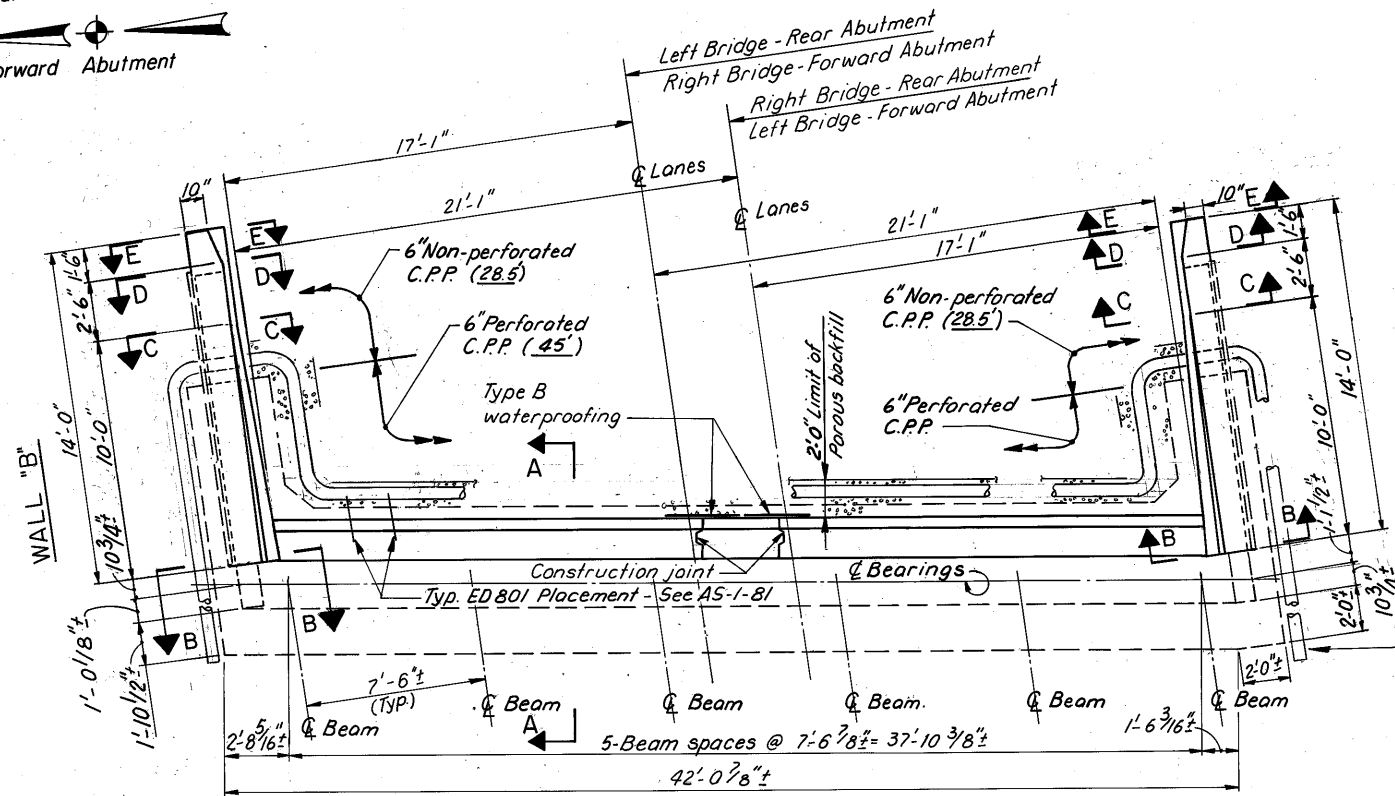 Forward Abutment
Left Bridge - Rear Abutment
Right Bridge - Forward Abutment
Right Bridge - Rear Abutment
Left Bridge - Forward Abutment
17'-1"
21'-1"
℄ Lanes
℄ Lanes
21'-1"
17'-1"
10"
10"
E
E
E
E
D
D
D
D
C
C
C
C
1'-6"
2'-6"
10'-0"
14'-0"
10 3/4"±
WALL "B"
1'-6"
2'-6"
10'-0"
14'-0"
1'-1 1/2"±
6" Non-perforated
C.P.P. (28.5')
6" Perforated
C.P.P. (45')
Type B
waterproofing
A
2'-0" Limit of
Porous backfill
6" Non-perforated
C.P.P. (28.5')
6" Perforated
C.P.P.
B
B
B
B
Construction joint
℄ Bearings
Typ. ED801 Placement - See AS-1-81
1'-0 1/8"±
1'-10 1/2"±
2'-0"±
10 3/4"±
2'-0"±
7'-6"±
(Typ.)
℄ Beam
℄ Beam
℄ Beam
℄ Beam.
℄ Beam
℄ Beam
A
2'-8 5/16"±
5-Beam spaces @ 7'-6 7/8"± = 37'-10 3/8"±
1'-6 3/16"±
42'-0 7/8"±